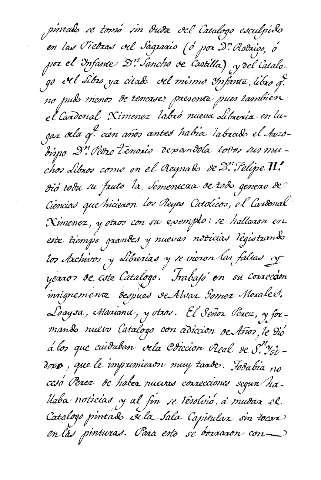 pintado se tomó sin duda del Catalogo esculpido
en las Piedras del Sagrario (ó por Dn. Rodrigo, ó
por el Infante Dn. Sancho de Castilla) y del Catalo-
go del Libro ya citado del mismo Infante, libro q.e
no pudo menos de tenerse presente pues tambien
el Cardenal Ximenez labró nueva Libreria en lu-
gar de la q.e cien años antes habia labrado el Arzo-
bispo Dn. Pedro Tenorio dexandola todos sus mu-
chos Libros como en el Reynado de Dn. Felipe II.º
dió todo su fruto la sementera de todo genero de
Ciencias que hicieron los Reyes Catolicos, el Cardenal
Ximenez, y otros con su exemplo: se hallaron en
este tiempo grandes y nuevas noticias registrando
los Archivos y Librerias y se vieron las faltas y
yerros de este Catalogo. Trabajó en su correccion
insignemente despues de Alvar Gomez Morales,
Loaysa, Mariana, y otros. El Señor Perez, y for-
mando nuevo Catalogo con adiccion de Años, le dió
á los que cuidaban de la Edicion Real de Sn. Ysi-
doro, que le imprimieron muy tarde. Todabia no
cesó Perez de haber nuevas correcciones segun ha-
llaba noticias y al fin se resolvió, á mudar el
Catalogo pintado de la Sala Capitular sin tocar
en las pinturas. Para esto se borraron con